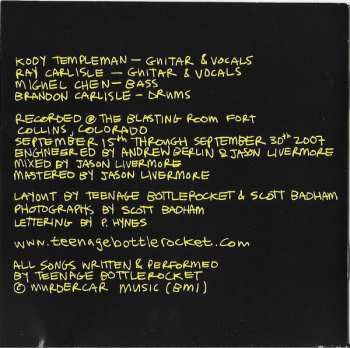 KODY TEMPLEMAN — GUITAR & VOCALS
RAY CARLISLE — GUITAR & VOCALS
MIGUEL CHEN — BASS
BRANDON CARLISLE — DRUMS
RECORDED @ THE BLASTING ROOM FORT
COLLINS, COLORADO
SEPTEMBER 15th THROUGH SEPTEMBER 30th 2007
ENGINEERED BY ANDREW BERLIN & JASON LIVERMORE
MIXED BY JASON LIVERMORE
MASTERED BY JASON LIVERMORE
LAYOUT BY TEENAGE BOTTLEROCKET & SCOTT BADHAM
PHOTOGRAPHS BY SCOTT BADHAM
LETTERING BY P. HYNES
www.teenagebottlerocket.com
ALL SONGS WRITTEN & PERFORMED
BY TEENAGE BOTTLEROCKET
© MURDERCAR MUSIC (BMI)